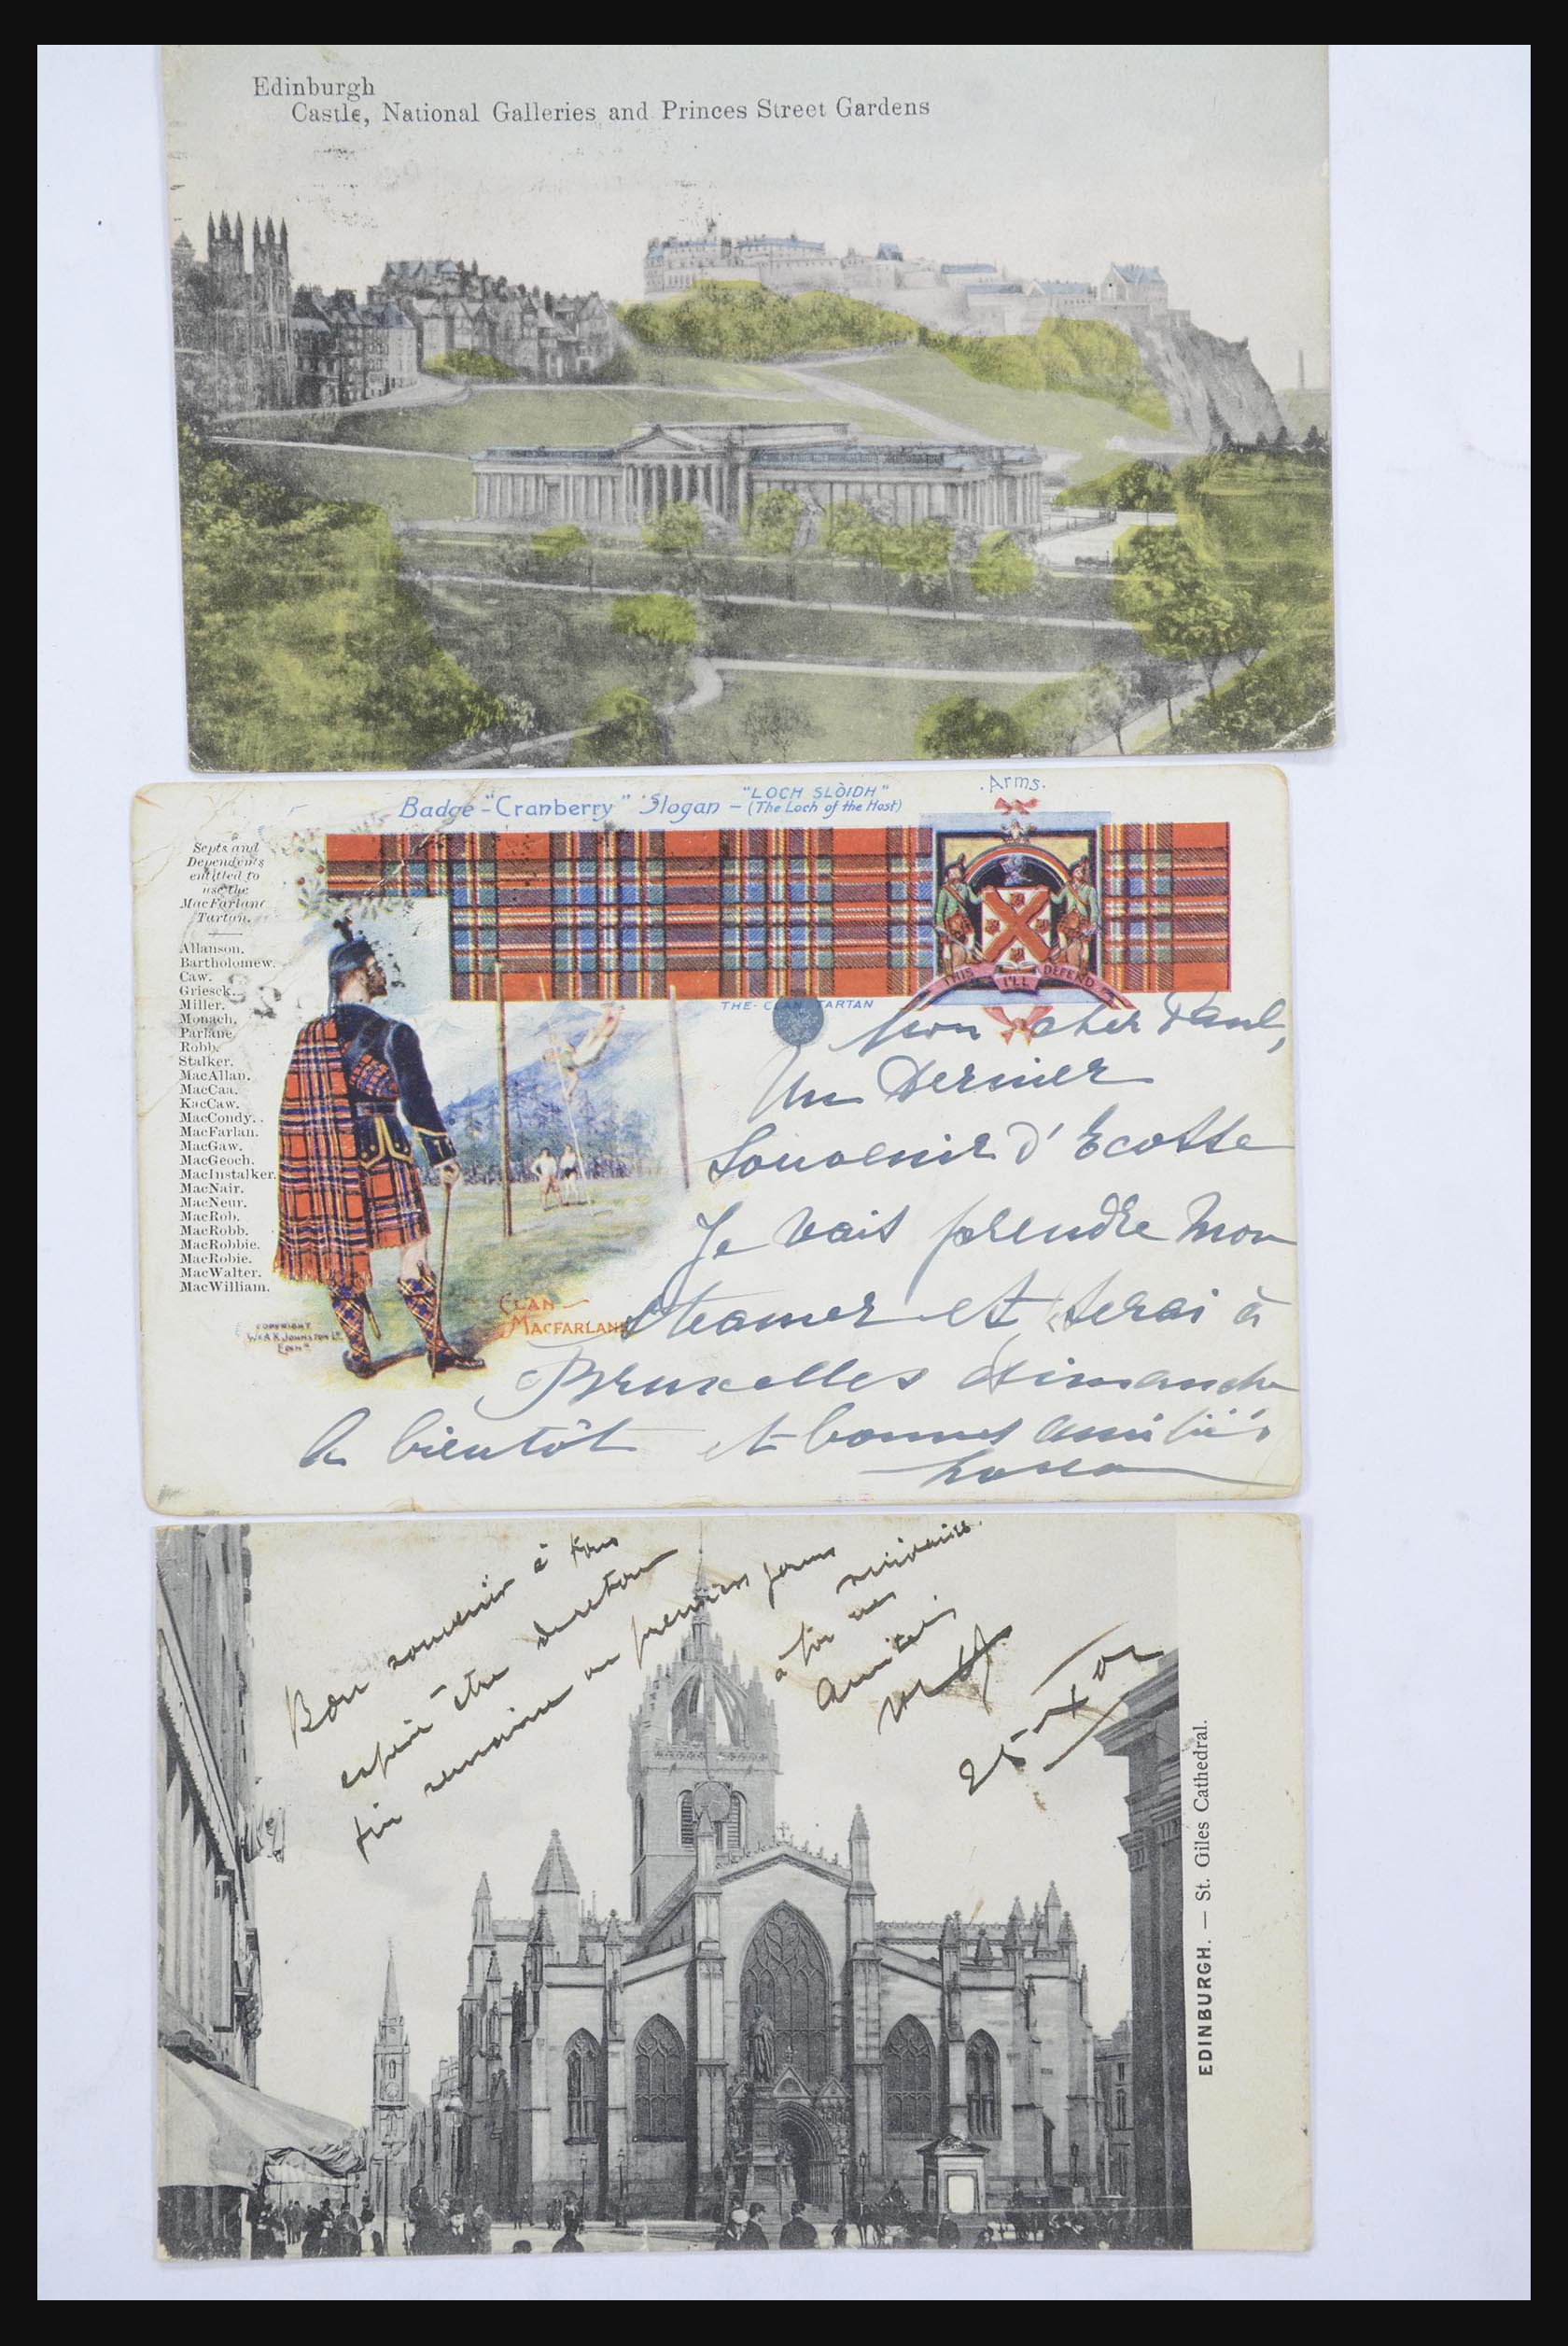 Edinburgh
Castle, National Galleries and Princes Street Gardens
Badge - "Cranberry" Slogan - "LOCH SLÒIDH"
(The Loch of the Host)
.Arms.
Septs and
Dependents
entitled to
use the
MacFarlane
Tartan.
Allanson.
Bartholomew.
Caw.
Griesck.
Miller.
Monach.
Parlane.
Robb.
Stalker.
MacAllan.
MacCaa.
KacCaw.
MacCondy.
MacFarlan.
MacGaw.
MacGeoch.
MacInstalker.
MacNair.
MacNeur.
MacRob.
MacRobb.
MacRobbie.
MacRobie.
MacWalter.
MacWilliam.
THIS I'LL DEFEND
THE CLAN TARTAN
CLAN
MACFARLANE
COPYRIGHT
W. & A. K. JOHNSTON LD.
EDINR
Mon cher Paul,
Un Dernier
Souvenir d'Ecosse
Je vais prendre mon
steamer et serai à
Bruxelles dimanche
A bientôt et bonnes amitiés
Bon souvenir à tous
espère être de retour
fin semaine ou premiers jours
à for
Amitiés
25 X 02
EDINBURGH. — St. Giles Cathedral.